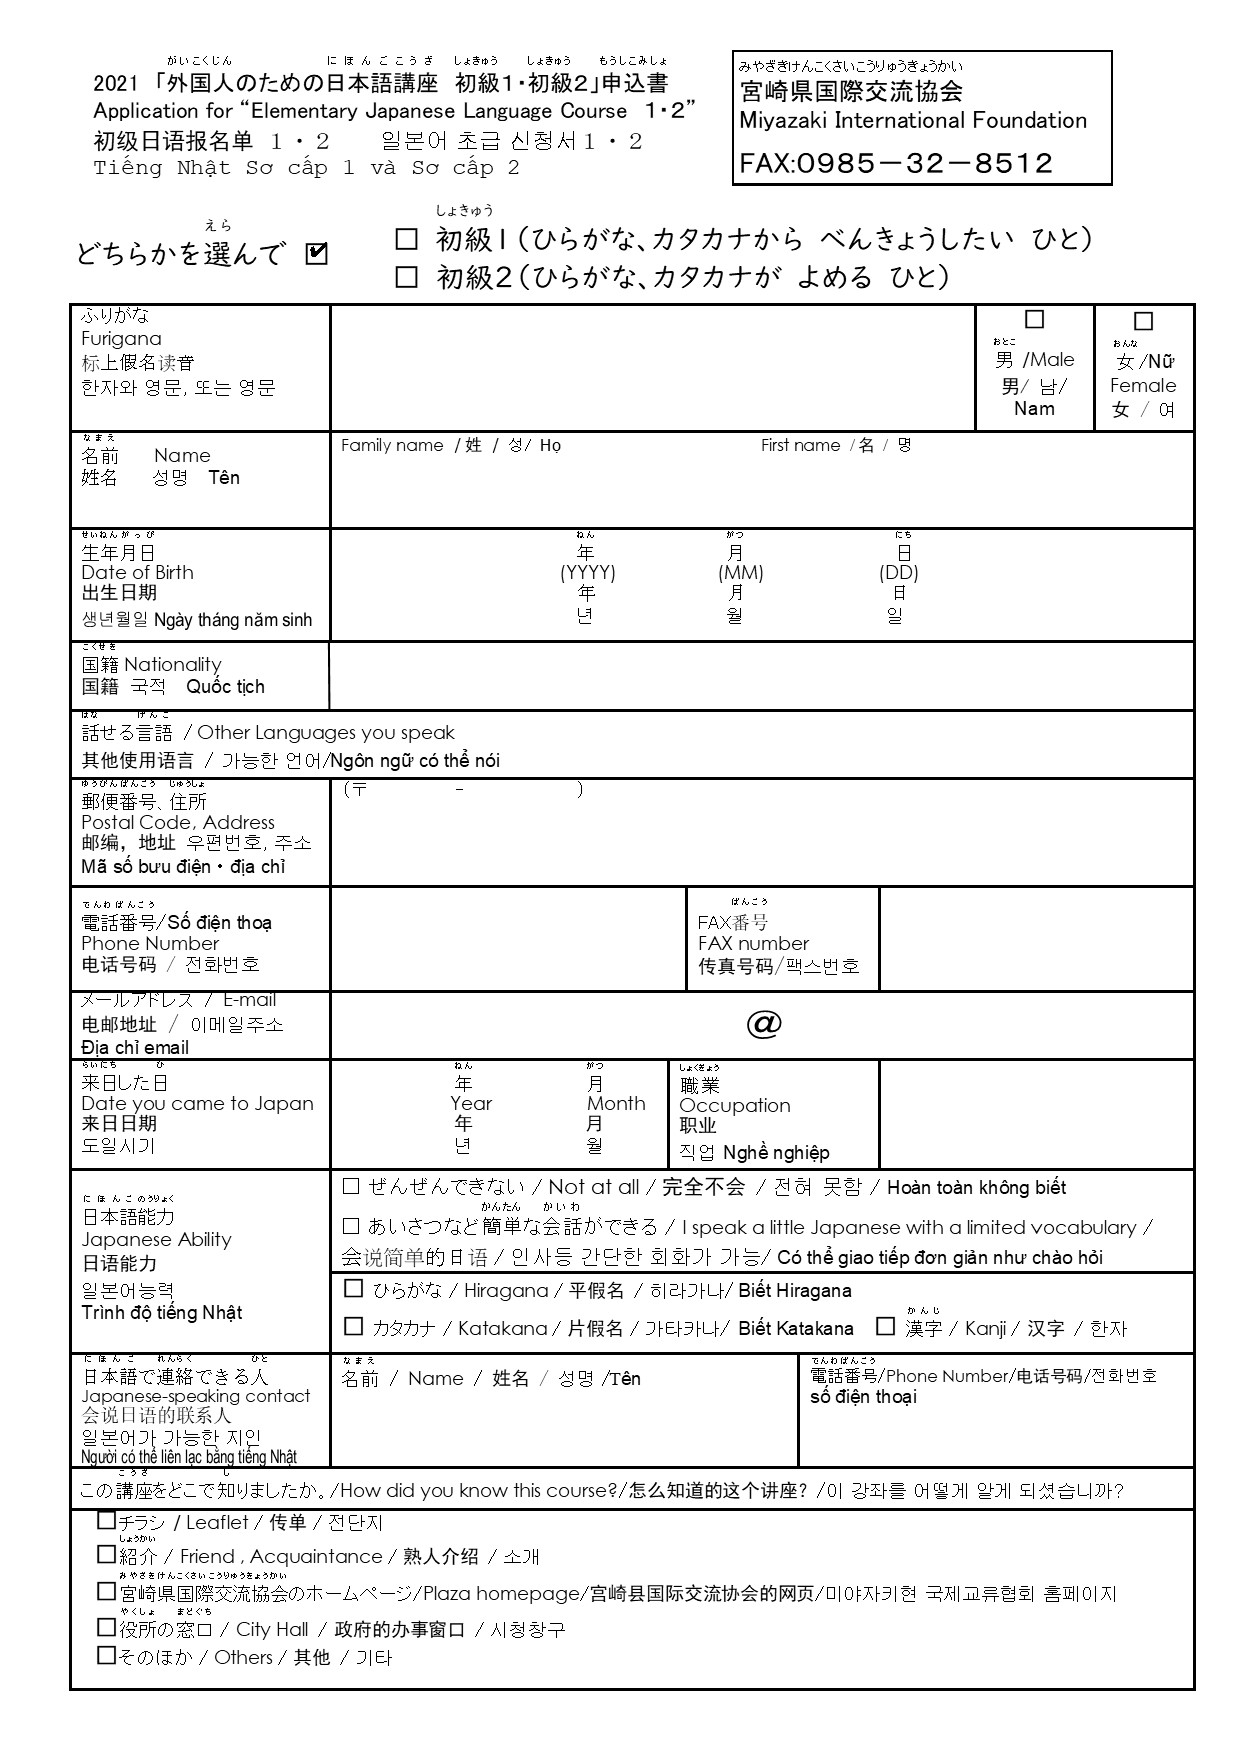 がいこくじん にほんごこうざ しょきゅう しょきゅう もうしこみしょ
2021 「外国人のための日本語講座 初級１・初級２」申込書
Application for “Elementary Japanese Language Course １・２”
初级日语报名单 １・２ 일본어 초급 신청서１・２
Tiếng Nhật Sơ cấp 1 và Sơ cấp 2
みやざきけんこくさいこうりゅうきょうかい
宮崎県国際交流協会
Miyazaki International Foundation
FAX:0985－32－8512
えら
どちらかを選んで ☑
しょきゅう
□ 初級１（ひらがな、カタカナから べんきょうしたい ひと）
□ 初級２（ひらがな、カタカナが よめる ひと）
ふりがな
Furigana
标上假名读音
한자와 영문, 또는 영문
□
おとこ
男 /Male
男/ 남/
Nam
□
おんな
女/Nữ
Female
女 / 여
なまえ
名前 Name
姓名 성명 Tên
Family name / 姓 / 성/ Họ First name / 名 / 명
せいねんがっぴ
生年月日
Date of Birth
出生日期
생년월일 Ngày tháng năm sinh
ねん がつ にち
年 月 日
(YYYY) (MM) (DD)
年 月 日
년 월 일
こくせき
国籍 Nationality
国籍 국적 Quốc tịch
はな げんご
話せる言語 / Other Languages you speak
其他使用语言 / 가능한 언어/Ngôn ngữ có thể nói
ゆうびんばんごう じゅうしょ
郵便番号、住所
Postal Code, Address
邮编，地址 우편번호, 주소
Mã số bưu điện・địa chỉ
(〒 - )
でんわばんごう
電話番号/Số điện thoạ
Phone Number
电话号码 / 전화번호
ばんごう
FAX番号
FAX number
传真号码/팩스번호
メールアドレス / E-mail
电邮地址 / 이메일주소
Địa chỉ email
@
らいにち ひ
来日した日
Date you came to Japan
来日日期
도일시기
ねん がつ
年 月
Year Month
年 月
년 월
しょくぎょう
職業
Occupation
职业
직업 Nghề nghiệp
にほんごのうりょく
日本語能力
Japanese Ability
日语能力
일본어능력
Trình độ tiếng Nhật
□ ぜんぜんできない / Not at all / 完全不会 / 전혀 못함 / Hoàn toàn không biết
かんたん かいわ
□ あいさつなど簡単な会話ができる / I speak a little Japanese with a limited vocabulary /
会说简单的日语 / 인사등 간단한 회화가 가능/ Có thể giao tiếp đơn giản như chào hỏi
□ ひらがな / Hiragana / 平假名 / 히라가나/ Biết Hiragana
かんじ
□ カタカナ / Katakana / 片假名 / 가타카나/ Biết Katakana □ 漢字 / Kanji / 汉字 / 한자
にほんご れんらく ひと
日本語で連絡できる人
Japanese-speaking contact
会说日语的联系人
일본어가 가능한 지인
Người có thể liên lạc bằng tiếng Nhật
なまえ
名前 / Name / 姓名 / 성명 /Tên
でんわばんごう
電話番号/Phone Number/电话号码/전화번호
số điện thoại
こうざ し
この講座をどこで知りましたか。/How did you know this course?/怎么知道的这个讲座? /이 강좌를 어떻게 알게 되셨습니까?
□チラシ / Leaflet / 传单 / 전단지
しょうかい
□紹介 / Friend , Acquaintance / 熟人介绍 / 소개
みやざきけんこくさいこうりゅうきょうかい
□宮崎県国際交流協会のホームページ/Plaza homepage/宫崎县国际交流协会的网页/미야자키현 국제교류협회 홈페이지
やくしょ まどぐち
□役所の窓口 / City Hall / 政府的办事窗口 / 시청창구
□そのほか / Others / 其他 / 기타